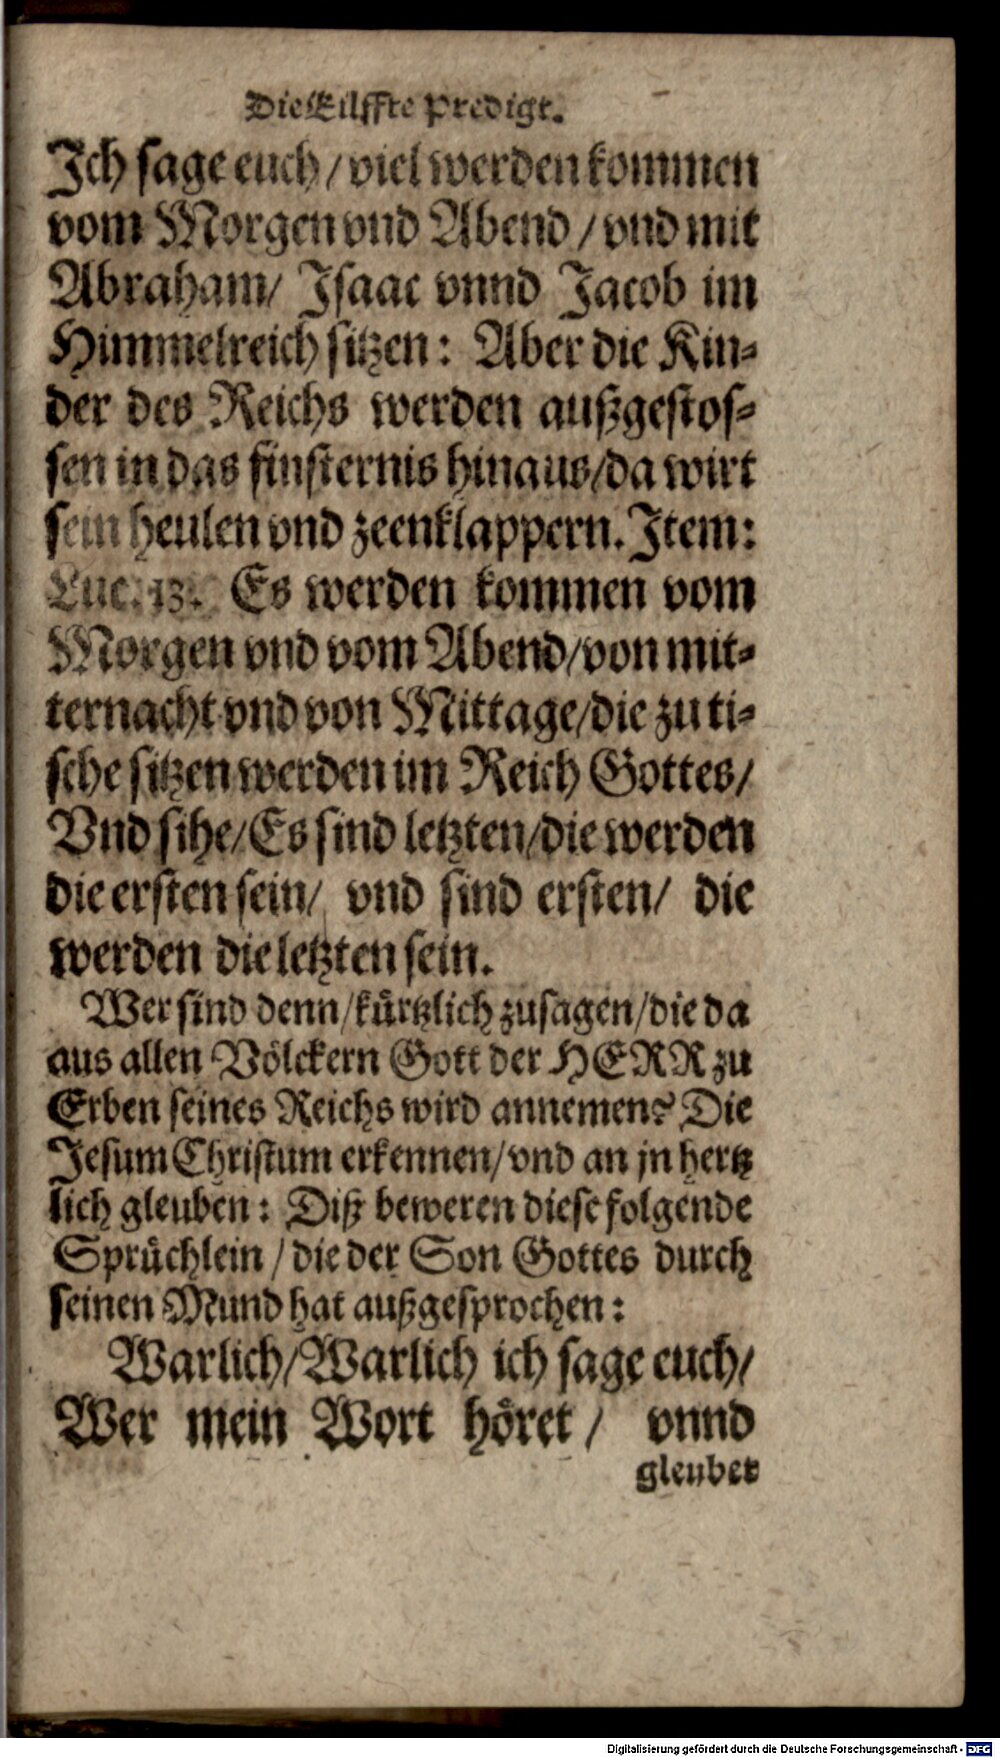 Die Eilffte Predigt.
Ich sage euch / viel werden kommen
vom Morgen vnd Abend / vnd mit
Abraham / Isaac vnnd Jacob im
Himmelreich sitzen : Aber die Kin-
der des Reichs werden außgestos-
sen in das finsternis hinaus / da wirt
sein heulen vnd zeenklappern. Item:
Luc. 13. Es werden kommen vom
Morgen vnd vom Abend / von mit-
ternacht vnd von Mittage / die zu ti-
sche sitzen werden im Reich Gottes /
Vnd sihe / Es sind letzten / die werden
die ersten sein / vnd sind ersten / die
werden die letzten sein.
Wer sind denn / kürtzlich zusagen / die da
aus allen Völckern Gott der HERR zu
Erben seines Reichs wird annemen? Die
Jesum Christum erkennen / vnd an jn hertz
lich gleuben : Diß beweren diese folgende
Sprüchlein / die der Son Gottes durch
seinen Mund hat außgesprochen :
Warlich / Warlich ich sage euch /
Wer mein Wort höret / vnnd
gleubet
Digitalisierung gefördert durch die Deutsche Forschungsgemeinschaft - DFG